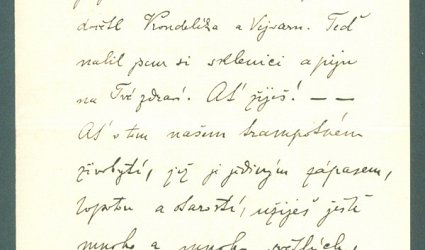 dočetl Kondelíka a Vejvaru. Teď
nalil jsem si sklenici a piju
na Tvé zdraví. Ať žiješ! — —
Ať v tom našem trampotném
živobytí, jež je jediným zápasem,
a starostí, užiješ ještě
mnoho a mnoho světlých,